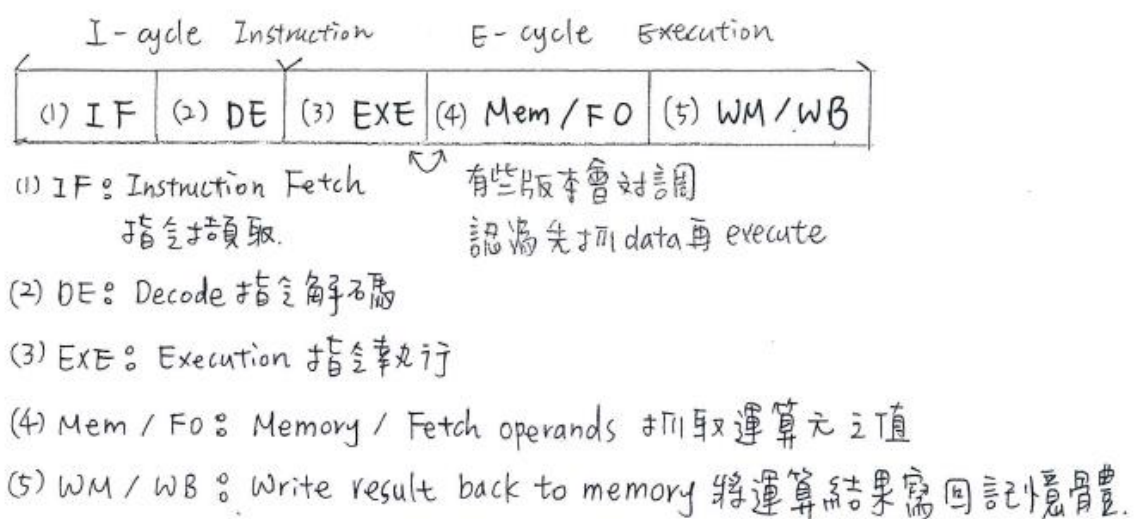 I-cycle Instruction E-cycle Execution
(1) IF (2) DE (3) EXE (4) Mem/FO (5) WM/WB
(1) IF: Instruction Fetch 有些版本會對調
指令擷取. 認為先抓data再execute
(2) DE: Decode 指令解碼
(3) EXE: Execution 指令執行
(4) Mem / FO: Memory / Fetch operands 抓取運算元之值
(5) WM / WB: Write result back to memory 將運算結果寫回記憶體.